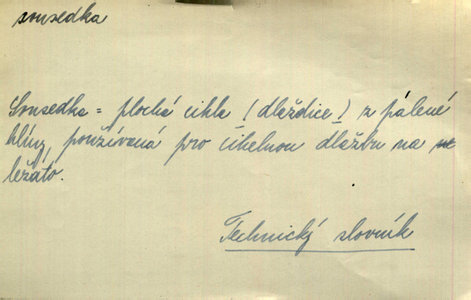 sousedka
Sousedka = plochá cihla (dlaždice) z pálené
hlíny, používaná pro cihelnou dlažbu na
ležato.
Technický slovník